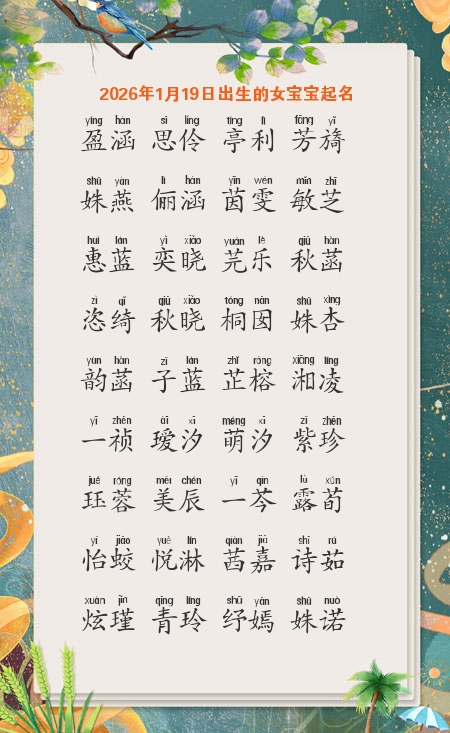 2026年1月19日出生的女宝宝起名
yíng hán sī líng tíng lì fāng yǐ
盈涵 思伶 亭利 芳旖
shū yàn lì hán yīn wén mǐn zhī
姝燕 俪涵 茵雯 敏芝
huì lán yì xiǎo yuán lè qiū hàn
惠蓝 奕晓 芫乐 秋菡
zī qǐ qiū xiǎo tóng nān shū xìng
恣绮 秋晓 桐囡 姝杏
yùn hàn zǐ lán zhǐ róng xiāng líng
韵菡 子蓝 芷榕 湘凌
yī zhēn ài xī méng xī zǐ zhēn
一祯 瑷汐 萌汐 紫珍
jué róng měi chén yī qín lù xún
珏蓉 美辰 一芩 露荀
yí jiāo yuè lín qiàn jiā shī rú
怡蛟 悦淋 茜嘉 诗茹
xuàn jǐn qīng líng shū yān shū nuò
炫瑾 青玲 纾嫣 姝诺